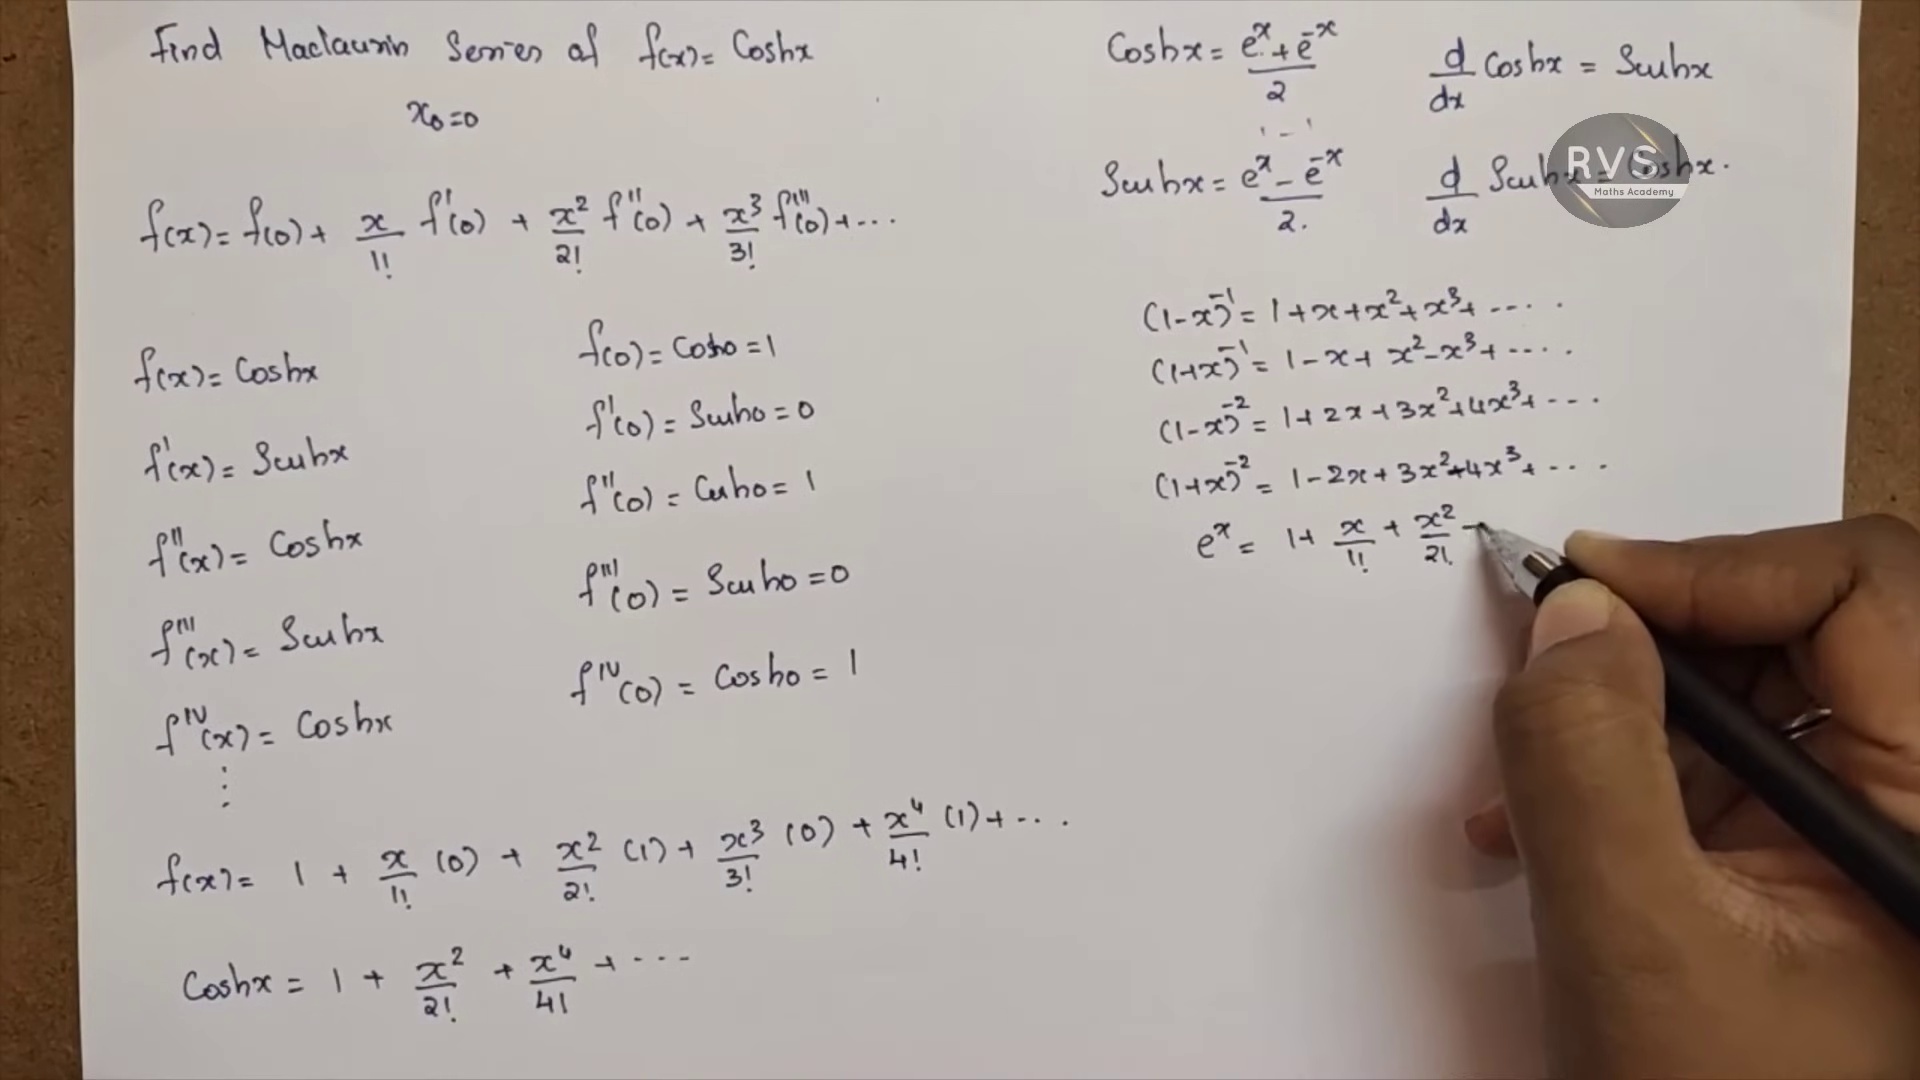 Find Maclaurin Series of f(x) = Coshx
x₀=0
f(x) = f(0) + x/1! f'(0) + x²/2! f''(0) + x³/3! f'''(0) + ...
f(x) = Coshx
f'(x) = Sinhx
f''(x) = Coshx
f'''(x) = Sinhx
f^IV(x) = Coshx
⋮
f(0) = Cosh0 = 1
f'(0) = Sinh0 = 0
f''(0) = Cosh0 = 1
f'''(0) = Sinh0 = 0
f^IV(0) = Cosh0 = 1
f(x) = 1 + x/1! (0) + x²/2! (1) + x³/3! (0) + x⁴/4! (1) + ...
Coshx = 1 + x²/2! + x⁴/4! + ...
Coshx = (e^x + e^-x)/2
d/dx Coshx = Sinhx
Sinhx = (e^x - e^-x)/2.
d/dx Sinhx = Coshx.
RVS
Maths Academy
(1-x)^-1 = 1+x+x²+x³+ .....
(1+x)^-1 = 1-x+x²-x³+ .....
(1-x)^-2 = 1+2x+3x²+4x³+ ....
(1+x)^-2 = 1-2x+3x²-4x³+ ....
e^x = 1+ x/1! + x²/2! -